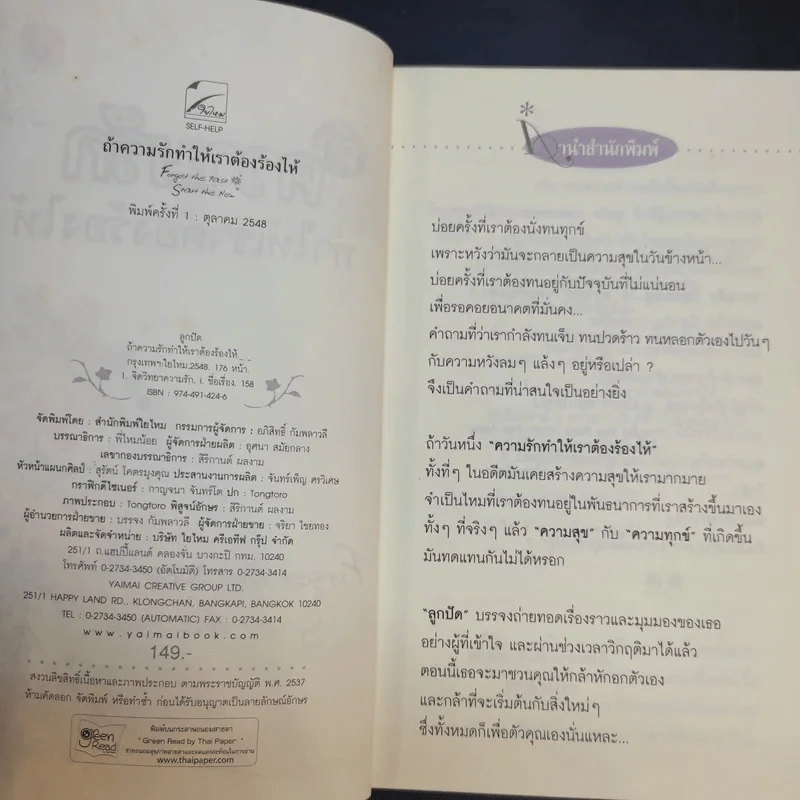 ใยไหม
SELF-HELP
ถ้าความรักทำให้เราต้องร้องไห้
Forget the Past
Start the New
พิมพ์ครั้งที่ 1 : ตุลาคม 2548
ลูกปัด
ถ้าความรักทำให้เราต้องร้องไห้.
กรุงเทพฯ:ใยไหม.2548. 176 หน้า.
1. จิตวิทยาความรัก. I. ชื่อเรื่อง. 158
ISBN : 974-491-424-6
จัดพิมพ์โดย : สำนักพิมพ์ใยไหม กรรมการผู้จัดการ : อภิสิทธิ์ กัมพลาวลี
บรรณาธิการ : พี่ไหมน้อย ผู้จัดการฝ่ายผลิต : อุศนา สมัยกลาง
เลขากองบรรณาธิการ : สิริกานต์ ผลงาม
หัวหน้าแผนกศิลป์ : สุรัตน์ โคตรมุงคุณ ประสานงานการผลิต : จันทร์เพ็ญ ศรวิเศษ
กราฟิกดีไซเนอร์ : กาญจนา จันทร์โต ปก : Tongtoro
ภาพประกอบ : Tongtoro พิสูจน์อักษร : สิริกานต์ ผลงาม
ผู้อำนวยการฝ่ายขาย : บรรจง กัมพลาวลี ผู้จัดการฝ่ายขาย : จริยา ไชยทอง
ผลิตและจัดจำหน่าย : บริษัท ใยไหม ครีเอทีฟ กรุ๊ป จำกัด
251/1 ถ.แฮปปี้แลนด์ คลองจั่น บางกะปิ กทม. 10240
โทรศัพท์ 0-2734-3450 (อัตโนมัติ) โทรสาร 0-2734-3414
YAIMAI CREATIVE GROUP LTD.
251/1 HAPPY LAND RD., KLONGCHAN, BANGKAPI, BANGKOK 10240
TEL : 0-2734-3450 (AUTOMATIC) FAX : 0-2734-3414
www.yaimaibook.com
149.-
สงวนลิขสิทธิ์เนื้อหาและภาพประกอบ ตามพระราชบัญญัติ พ.ศ. 2537
ห้ามคัดลอก จัดพิมพ์ หรือทำซ้ำ ก่อนได้รับอนุญาตเป็นลายลักษณ์อักษร
Green Read
พิมพ์บนกระดาษถนอมสายตา
" Green Read by Thai Paper "
ช่วยถนอมสุขภาพสายตาและลดแสงสะท้อนในการอ่าน
www.thaipaper.com
คำนำสำนักพิมพ์
บ่อยครั้งที่เราต้องนั่งทนทุกข์
เพราะหวังว่ามันจะกลายเป็นความสุขในวันข้างหน้า...
บ่อยครั้งที่เราต้องทนอยู่กับปัจจุบันที่ไม่แน่นอน
เพื่อรอคอยอนาคตที่มั่นคง...
คำถามที่ว่าเรากำลังทนเจ็บ ทนปวดร้าว ทนหลอกตัวเองไปวันๆ
กับความหวังลมๆ แล้งๆ อยู่หรือเปล่า ?
จึงเป็นคำถามที่น่าสนใจเป็นอย่างยิ่ง
ถ้าวันหนึ่ง “ความรักทำให้เราต้องร้องไห้”
ทั้งที่ๆ ในอดีตมันเคยสร้างความสุขให้เรามากมาย
จำเป็นไหมที่เราต้องทนอยู่ในพันธนาการที่เราสร้างขึ้นมาเอง
ทั้งๆ ที่จริงๆ แล้ว “ความสุข” กับ “ความทุกข์” ที่เกิดขึ้น
มันทดแทนกันไม่ได้หรอก
“ลูกปัด” บรรจงถ่ายทอดเรื่องราวและมุมมองของเธอ
อย่างผู้ที่เข้าใจ และผ่านช่วงเวลาวิกฤติมาได้แล้ว
ตอนนี้เธอจะมาชวนคุณให้กล้าหักอกตัวเอง
และกล้าที่จะเริ่มต้นกับสิ่งใหม่ๆ
ซึ่งทั้งหมดก็เพื่อตัวคุณเองนั่นแหละ...